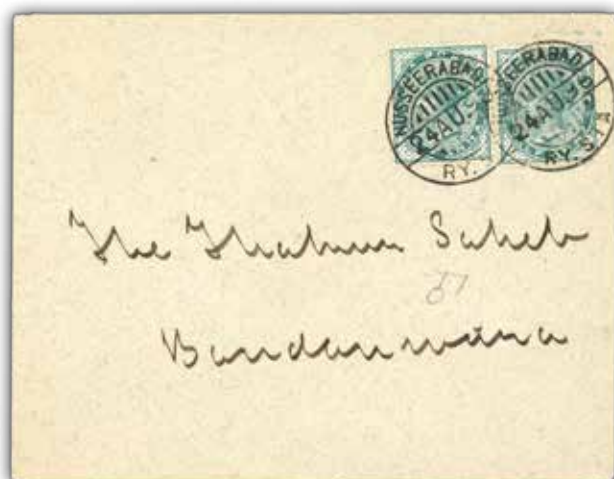 NUSSEERABAD
24 AU
RY.
NUSSEERABAD
24 AU
RY. S
The Thakur Saheb
Bandanwara